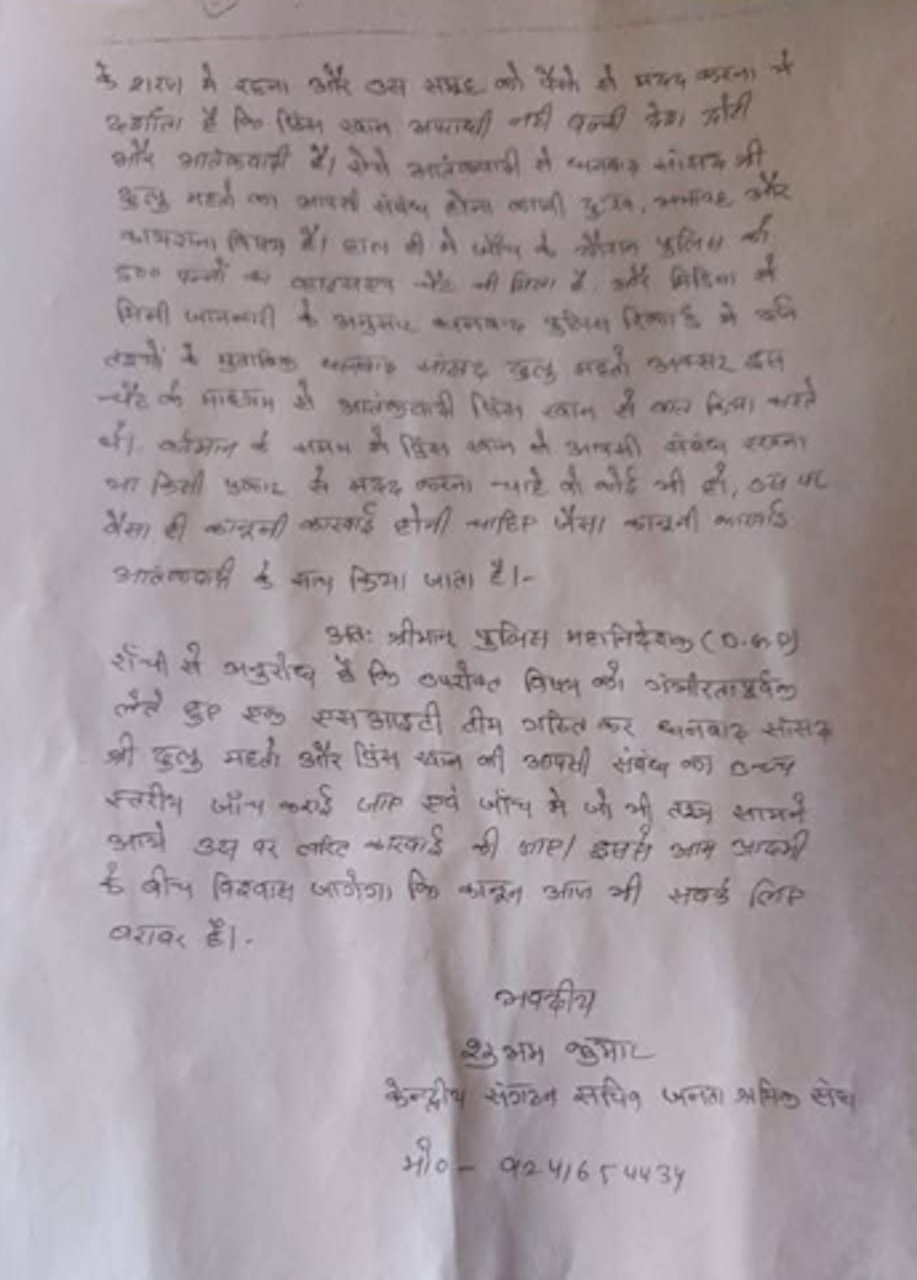 के शरण में रहना और उस समूह को पैसे से मदद करना ये
दर्शाता है कि प्रिंस खान अपराधी नहीं बल्की देश द्रोही
और आतंकवादी है। ऐसे आतंकवादी से धनबाद सांसद श्री
ढुलु महतो का आपसी संबंध होना काफी दुःखद, और
विषय है। हाल ही में जाँच के दौरान पुलिस को
500 पन्नों का चैट भी मिला है, और मिडिया से
मिली जानकारी के अनुसार धनबाद पुलिस रिकार्ड में दर्ज
तथ्यों के मुताबिक धनबाद सांसद ढुलु महतो अक्सर इस
चैट के माध्यम से आतंकवादी प्रिंस खान से बात किया करते
थे। वर्तमान के समय में प्रिंस खान से आपसी संबंध रखना
या किसी प्रकार से मदद करना चाहे वो कोई भी हो, उस पर
वैसा ही कानूनी कारवाई होनी चाहिए जैसा कानूनी कारवाई
आतंकवादी के साथ किया जाता है।-
अतः श्रीमान पुलिस महानिदेशक (D.G.P)
राँची से अनुरोध है कि उपरोक्त विषय को गंभीरतापूर्वक
लेते हुए एक एसआइटी टीम गठित कर धनबाद सांसद
श्री ढुलु महतो और प्रिंस खान की आपसी संबंध का उच्च
स्तरीय जाँच कराई जाए एवं जाँच में जो भी तथ्य सामने
आये उस पर त्वरित कारवाई की जाए। इससे आम आदमी
के बीच विश्वास जागेगा कि कानून आज भी सबके लिए
बराबर है।-
भवदीय
शुभम कुमार
केन्द्रीय संगठन सचिव जनता श्रमिक संघ
मो० - 9241654434